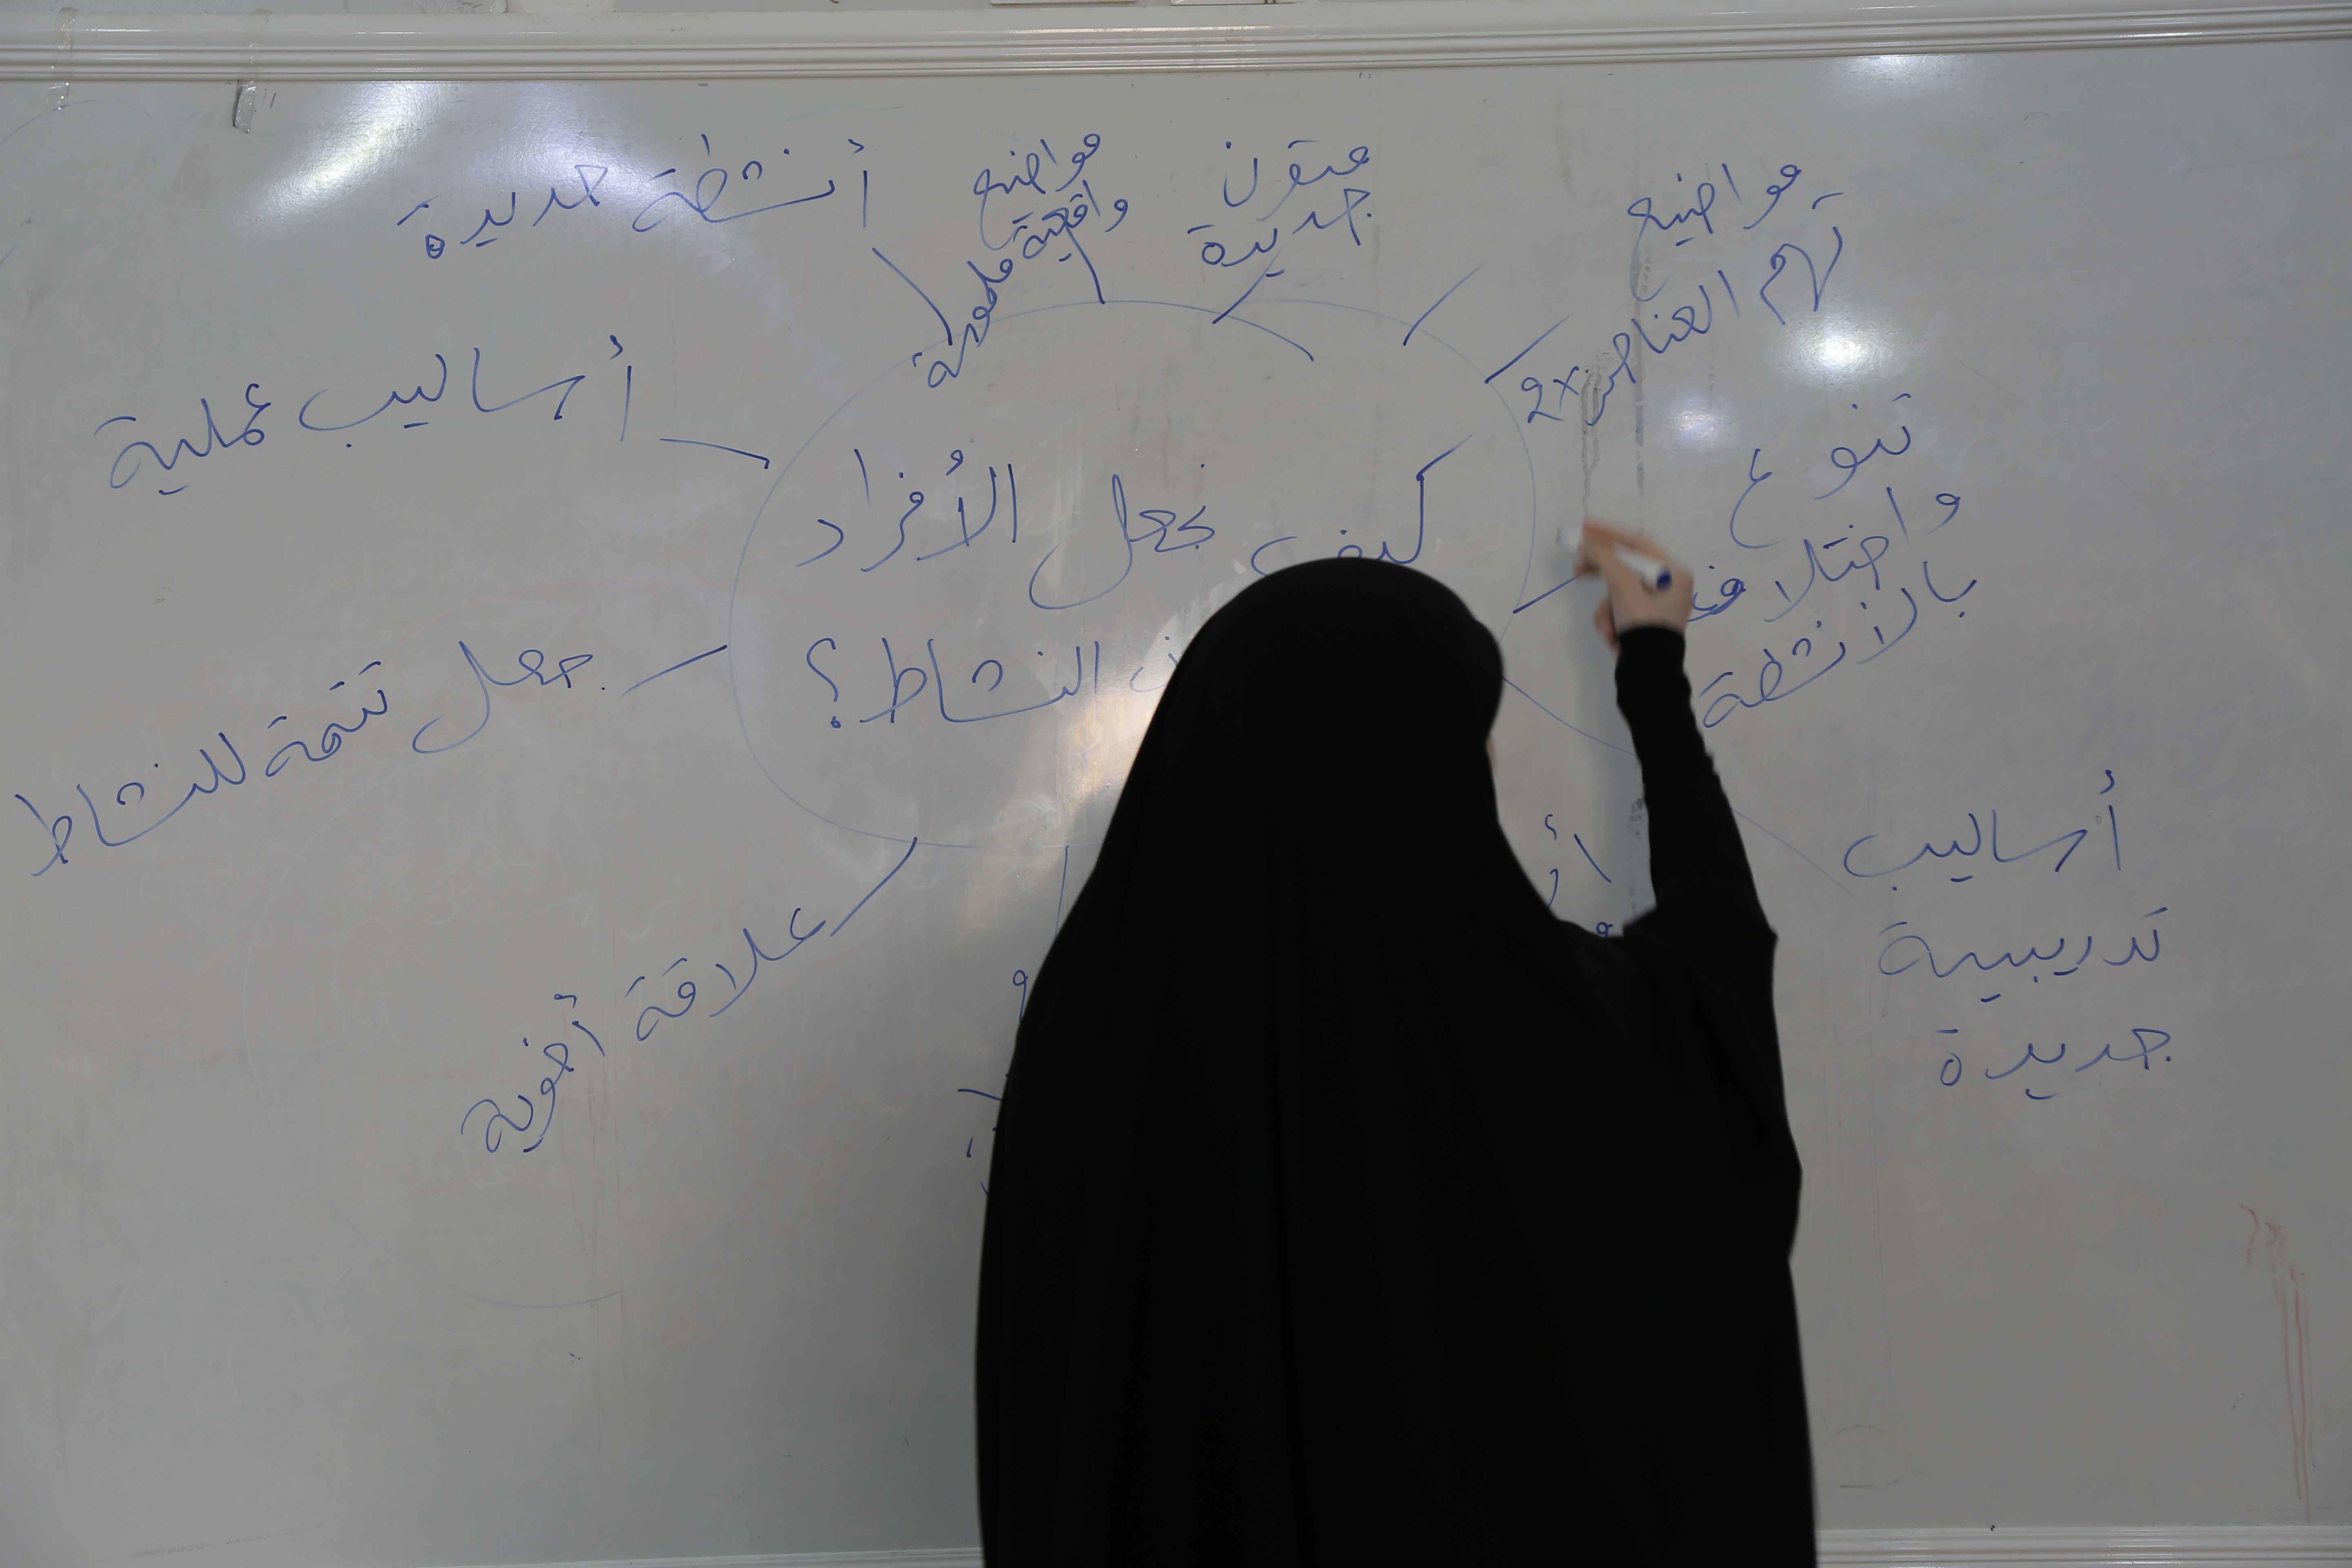 أنشطة جديدة
مواضيع
واقعية ملموسة
متون
جديدة
مواضيع
تهم العناصر 2x
تنوع
واختلاف
بالأنشطة
أساليب
تدريبية
جديدة
أساليب عملية
جعل تتمة للنشاط
علاقة أخوية
كيف نجعل الأفراد
النشاط؟